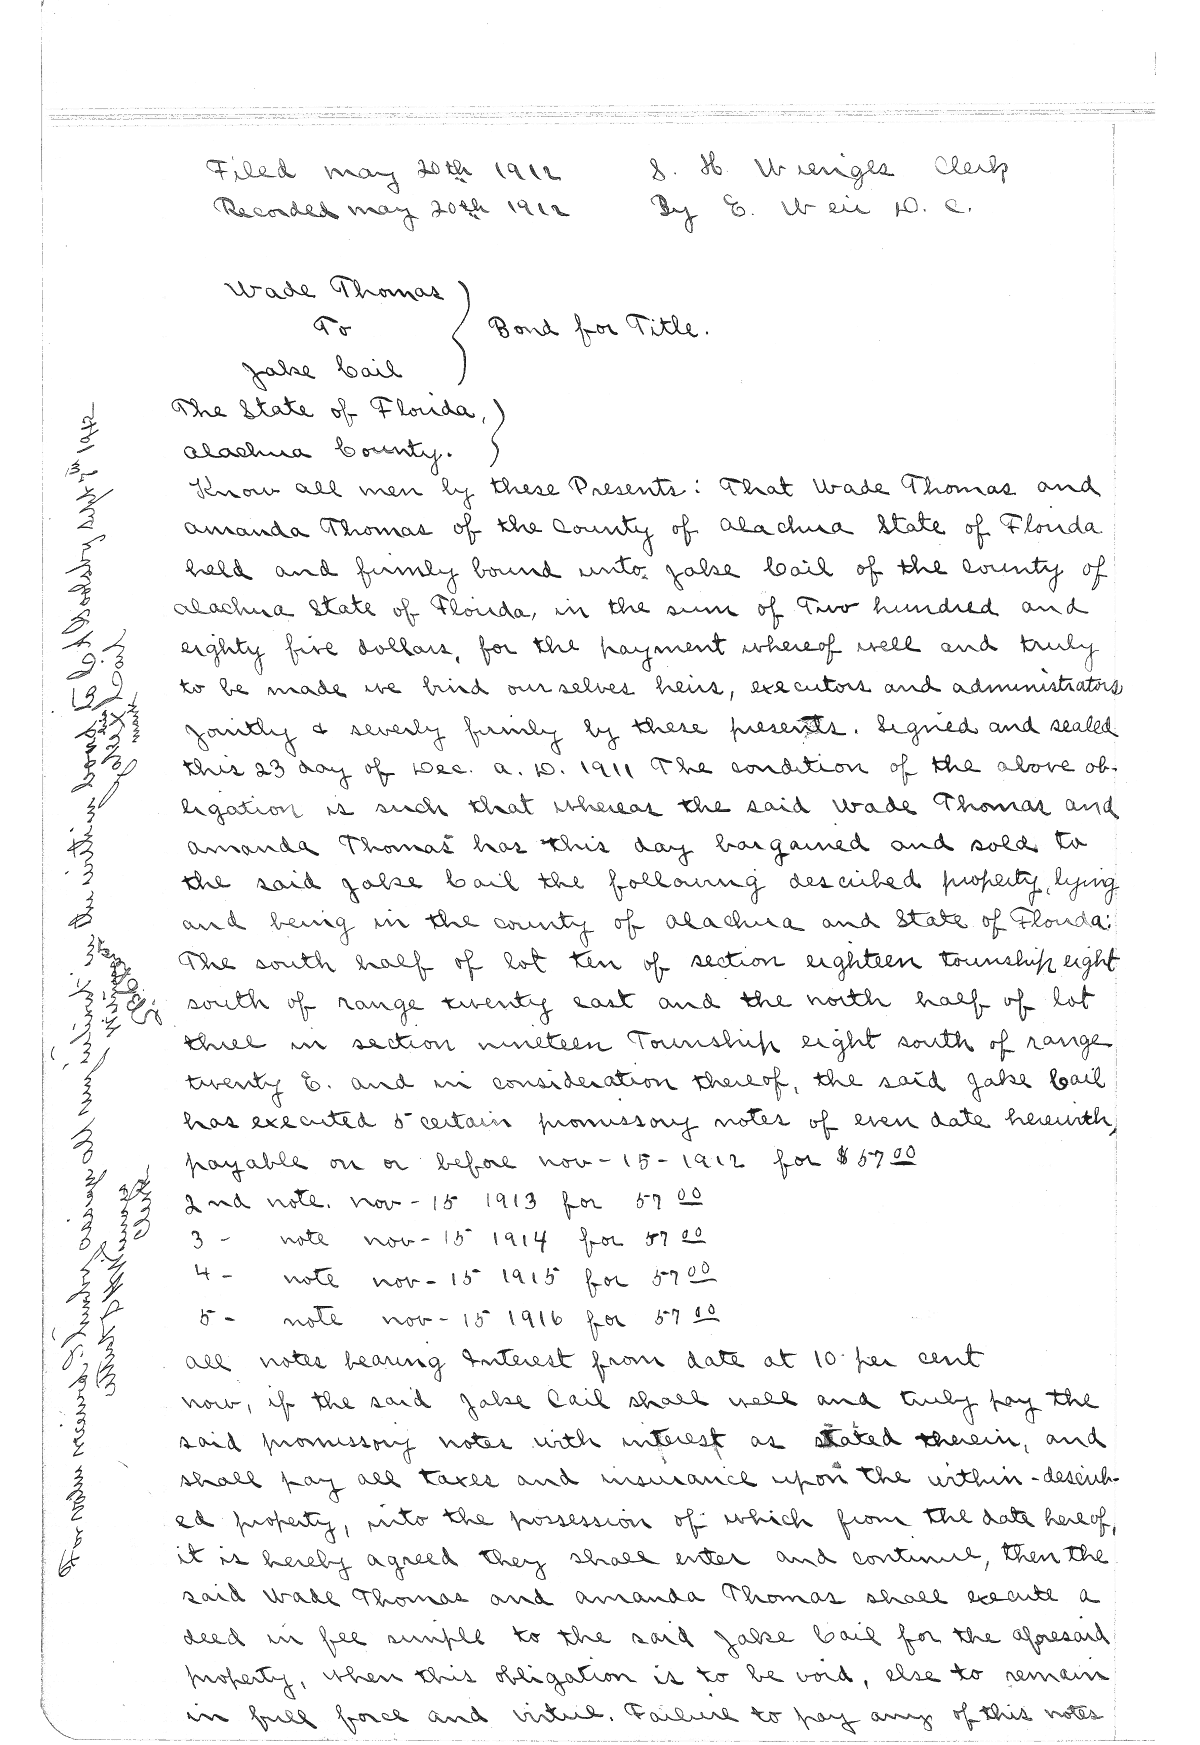 Filed may 20th 1912 S. H. Wienges Clerk
Recorded may 20th 1912 By E. Weir D. C.
Wade Thomas
To
Jake Cail
Bond for Title.
The State of Florida,
Alachua County.
Know all men by these Presents: That Wade Thomas and
Amanda Thomas of the County of Alachua State of Florida
held and firmly bound unto Jake Cail of the county of
Alachua State of Florida, in the sum of Two hundred and
eighty five dollars, for the payment whereof well and truly
to be made we bind ourselves heirs, executors and administrators
jointly & severly firmly by these presents. Signed and sealed
this 23 day of Dec. A. D. 1911 The condition of the above ob-
ligation is such that whereas the said Wade Thomas and
Amanda Thomas has this day bargained and sold to
the said Jake Cail the following described property, lying
and being in the county of Alachua and State of Florida:
The south half of lot ten of section eighteen township eight
south of range twenty east and the north half of lot
three in section nineteen Township eight south of range
twenty E. and in consideration thereof, the said Jake Cail
has executed 5 certain promissory notes of even date herewith,
payable on or before nov-15-1912 for $57 00
2nd note. nov-15 1913 for 57 00
3 - note nov-15 1914 for 57 00
4 - note nov-15 1915 for 57 00
5 - note nov-15 1916 for 57 00
all notes bearing Interest from date at 10 per cent
now, if the said Jake Cail shall well and truly pay the
said promissory notes with interest as stated therein, and
shall pay all taxes and insurance upon the within-describ-
ed property, into the possession of which from the date hereof,
it is hereby agreed they shall enter and continue, then the
said Wade Thomas and Amanda Thomas shall execute a
deed in fee simple to the said Jake Cail for the aforesaid
property, when this obligation is to be void, else to remain
in full force and virtue. Failure to pay any of this notes